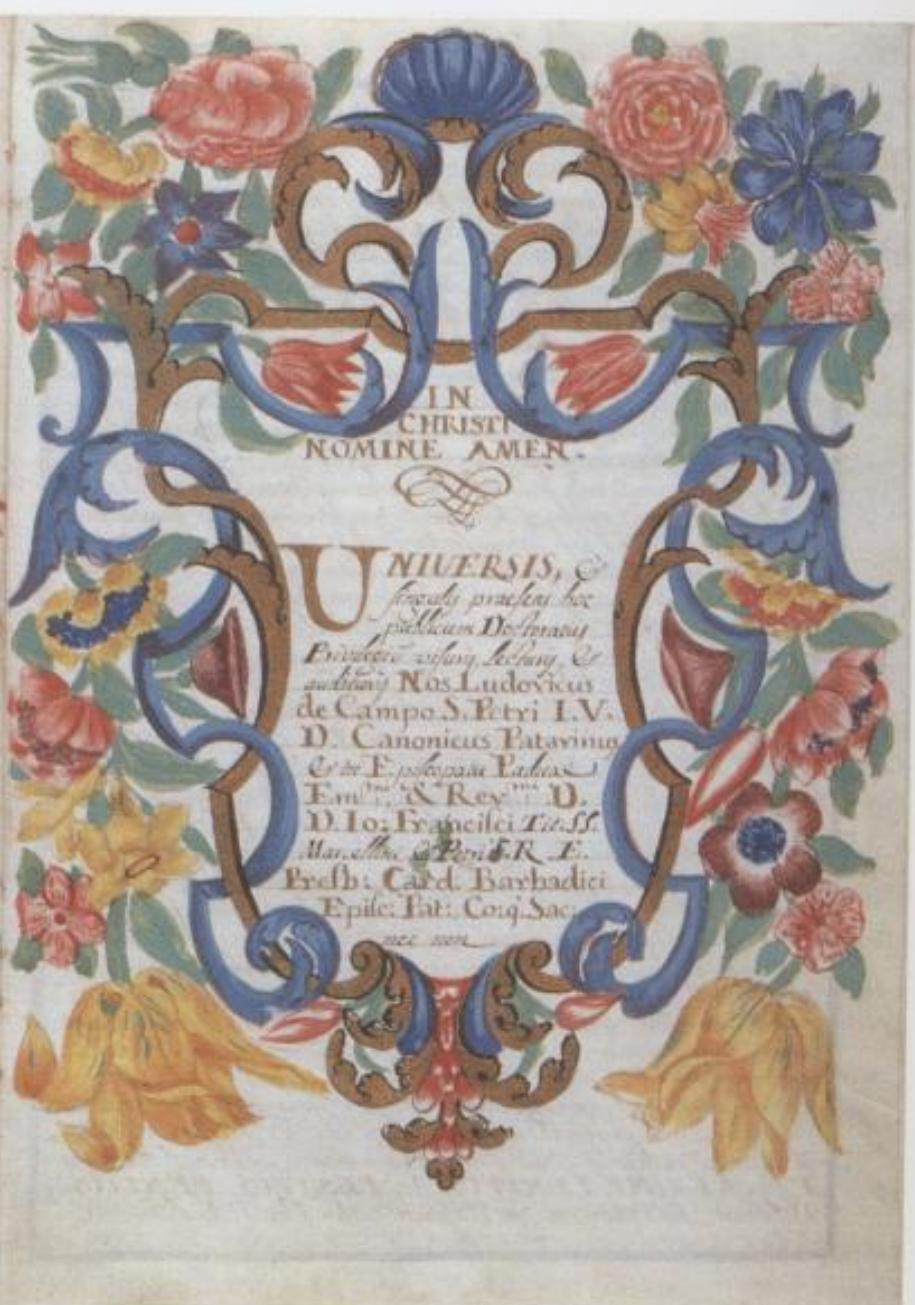 IN
CHRISTI
NOMINE AMEN.
UNIUERSIS, &
singulis praesens hoc
publicum Doctoratus
Privilegiũ visuris, lecturis, &
audituris Nos Ludovicus
de Campo S. Petri I. V.
D. Canonicus Patavinus
& in Episcopatu Paduae
Em.mi & Rev.mi D.
D. Io: Francisci Tit: SS.
Marcellini & Petri S. R. E.
Presb: Card. Barbadici
Episc: Pat: Co:q̃. Sac:
nec non